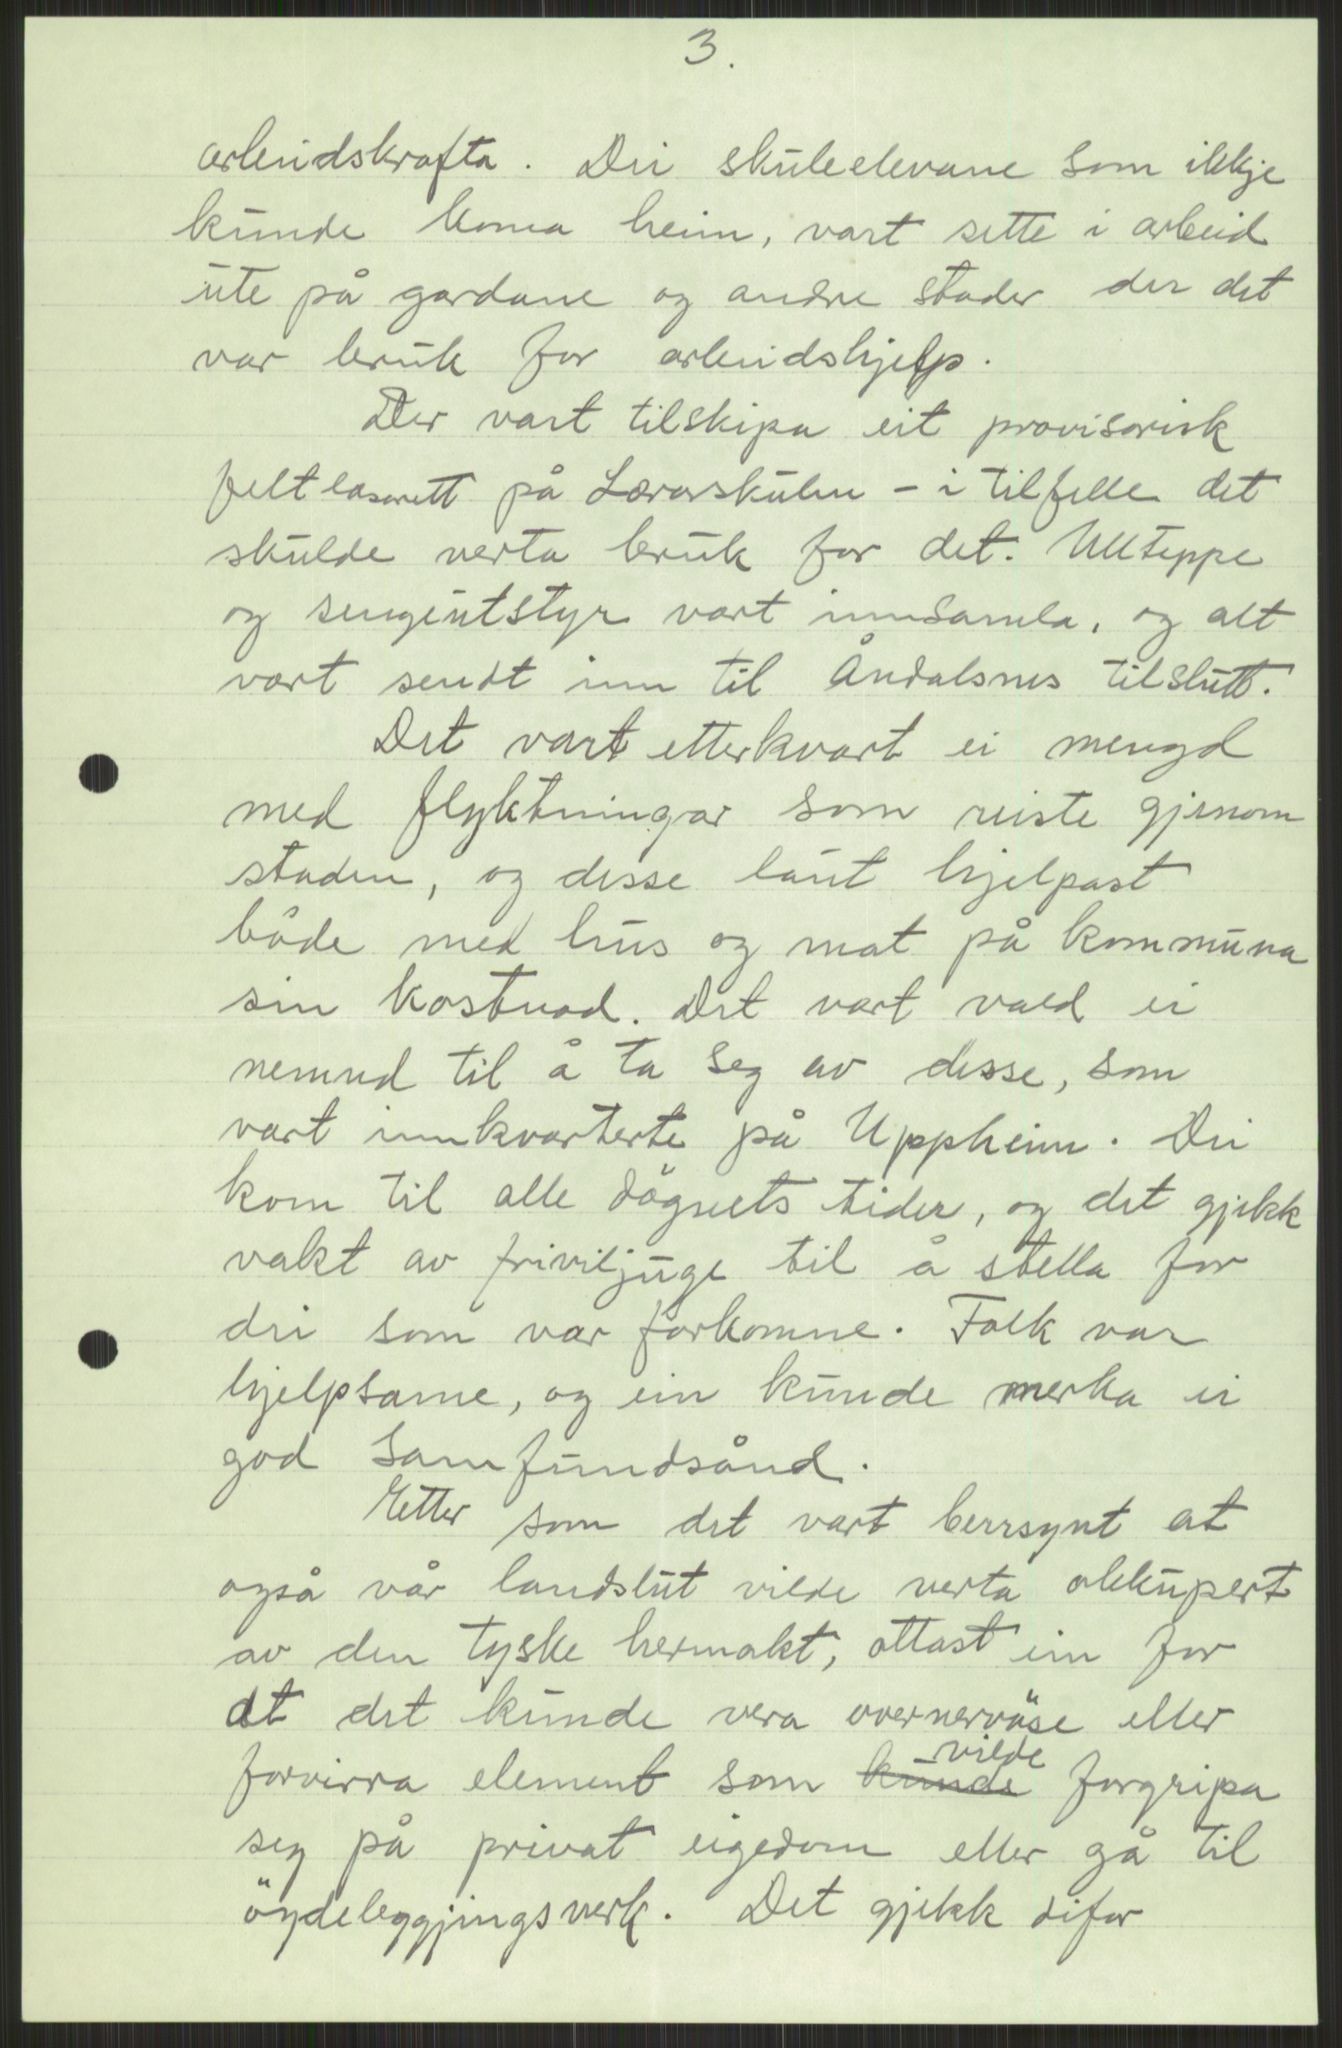 3.
arbeidskrafta. Dei skuleelevane som ikkje
kunde koma heim, vart sette i arbeid
ute på gardane og andre stader der det
var bruk for arbeidshjelp.
Der vart tilskipa eit provisorisk
feltlasarett på Lærarskulen - i tilfelle det
skulde verta bruk for det. Ullteppe
og sengeutstyr vart innsamla, og alt
vart sendt inn til Åndalsnes tilslutt.
Det vart etterkvart ei mengd
med flyktningar som reiste gjenom
staden, og desse laut hjelpast
både med hus og mat på kommuna
sin kostnad. Det vart vald ei
nemnd til å ta seg av desse, som
vart innkvarterte på Uppheim. Dei
kom til alle dögnets tider, og det gjekk
vakt av friviljuge til å stella for
dei som var forkomne. Folk var
hjelpsame, og ein kunde merka ei
god samfundsånd.
Etter som det vart berrsynt at
også vår landslut vilde verta okkupert
av den tyske hermakt, ottast ein for
at det kunde vera overnervöse eller
forvirra element som kunde vilde forgripa
seg på privat eigedom eller gå til
öydeleggjingsverk. Det gjekk difor